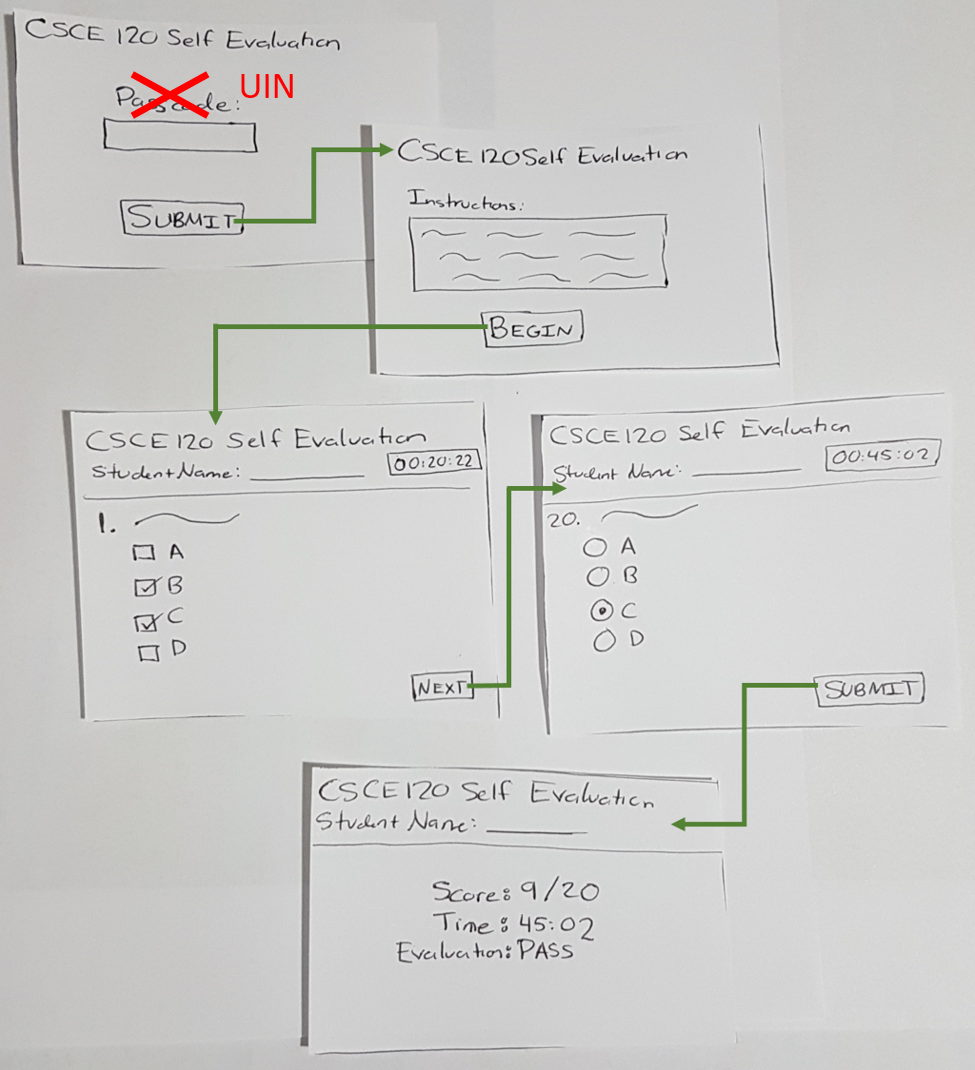 CSCE 120 Self Evaluation
Passcode: UIN
SUBMIT
CSCE 120 Self Evaluation
Instructions:
BEGIN
CSCE 120 Self Evaluation
Student Name:
00:20:22
1.
A
B
C
D
NEXT
CSCE 120 Self Evaluation
Student Name:
00:45:02
20.
A
B
C
D
SUBMIT
CSCE 120 Self Evaluation
Student Name:
Score: 9/20
Time: 45:02
Evaluation: PASS